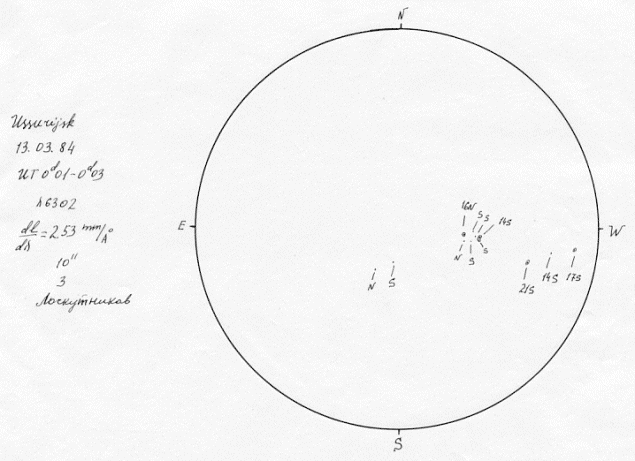 N
Ussurijsk
13. 03. 84
UT 0ᵈ01-0ᵈ03
λ6302
dl/dλ = 2.53 mm/Å
10"
3
Лоскутников
E
W
16N
S S 14S
N S S
N S
21S 14S 17S
S